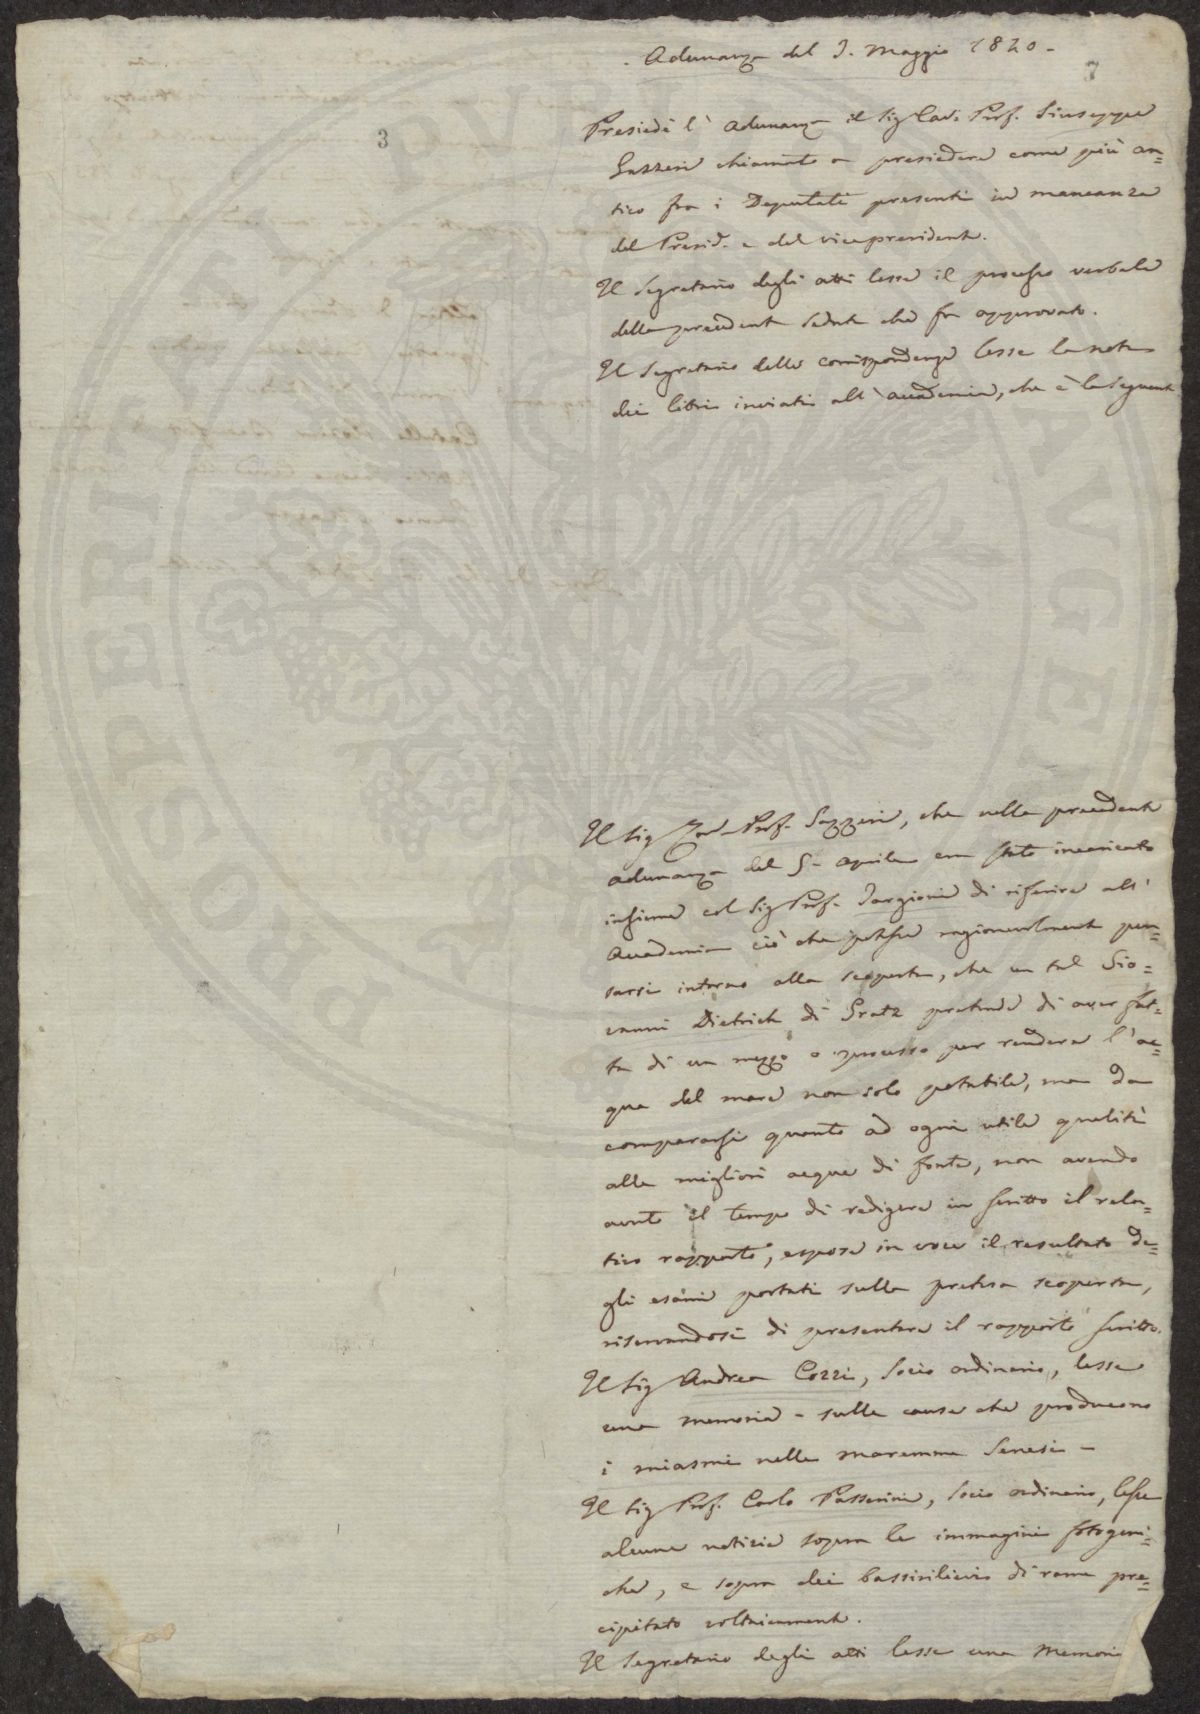 Adunanza del 3. Maggio 1840.
7
3
Presiedè l'adunanza il Sig Cav. Prof. Giuseppe
Gazzeri chiamato a presiedere come più an=
tico fra i Deputati presenti in mancanza
del Presid. e del vicepresidente.
Il Segretario degli atti lesse il processo verbale
della precedente seduta che fu approvato.
Il Segretario delle corrispondenze lesse la nota
dei libri inviati all'accademia, che è la seguente
Il Sig Cav Prof. Gazzeri, che nella precedente
adunanza del 5 aprile era stato incaricato
insieme col Sig Prof. Targioni di riferire all'
Accademia ciò che potesse ragionevolmente pen=
sarsi intorno alla scoperta, che un tal Gio=
vanni Dietrich di Gratz pretende di aver fat=
ta di un mezzo o processo per rendere l'ac=
qua del mare non solo potabile, ma da
compararsi quanto ad ogni utile qualità
alle migliori acque di fonte, non avendo
avuto il tempo di redigere in scritto il rela=
tivo rapporto, espose in voce il resultato de=
gli esami portati sulla pretesa scoperta,
riservandosi di presentare il rapporto scritto.
Il Sig Andrea Cozzi, socio ordinario, lesse
una memoria - sulle cause che producono
i miasmi nelle maremme Senesi -
Il Sig Prof. Carlo Passerini, socio ordinario, lesse
alcune notizie sopra le immagini fotogeni=
che, e sopra dei bassirilievi di rame pre=
cipitato voltaicamente.
Il Segretario degli atti lesse una Memori
PROSPERITATI AVGEN